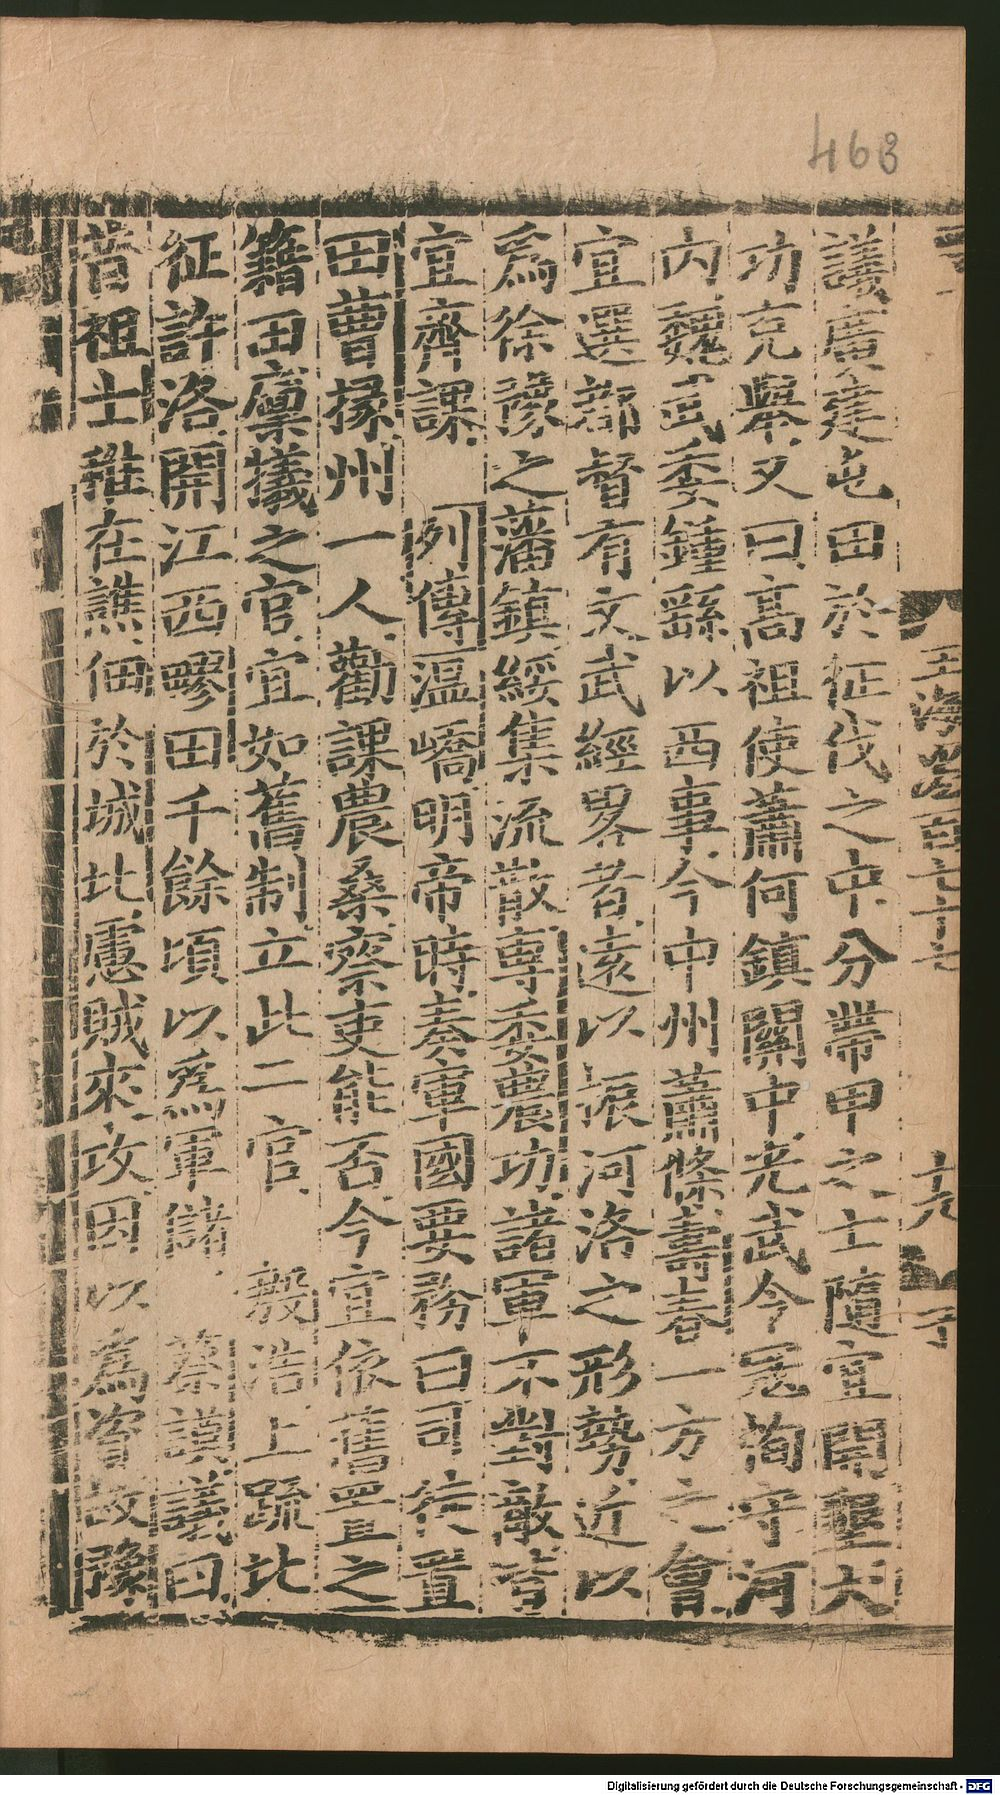 463
議廣建屯田於征伐之中分帶甲之士隨宜開墾大
功克舉又曰高祖使蕭何鎮關中光武令寇恂守河
內魏武委鍾繇以西事今中州蕭條壽春一方之會
宜選都督有文武經畧者遠以振河洛之形勢近以
爲徐豫之藩鎮綏集流散專委農功諸軍不對敵皆
宜齊課　列傳溫嶠明帝時奏軍國要務曰司徒置
田曹掾州一人勸課農桑察吏能否今宜依舊置之
籍田廩犧之官宜如舊制立此二官　殷浩上疏北
征許洛開江西疁田千餘頃以爲軍儲　蔡謨議曰
昔祖士稚在譙佃於城北慮賊來攻因以爲資故豫
玉海卷百七十七
十六
Digitalisierung gefördert durch die Deutsche Forschungsgemeinschaft - DFG